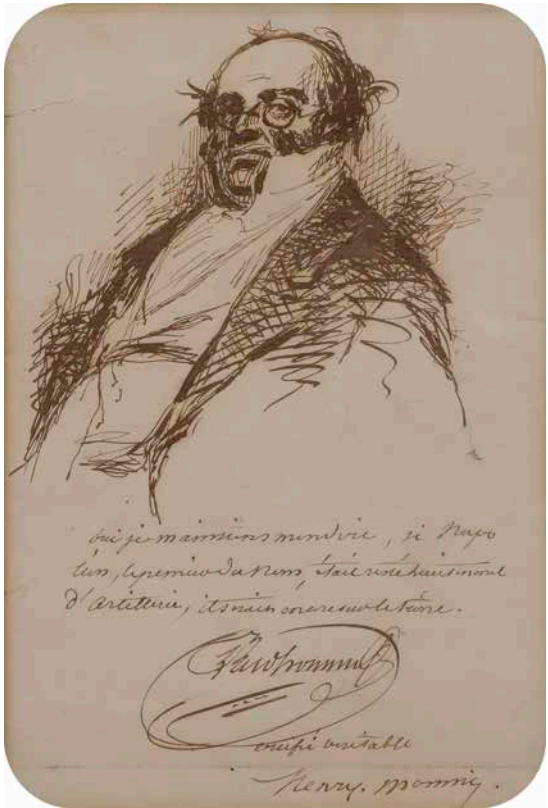 oui je maintiens mon dire, si Napo
léon, le premier du Nom, était resté lieutenant
d'artillerie, il serait encore sur le trône.
Prudhomme
certifié véritable
Henry. Monnier.